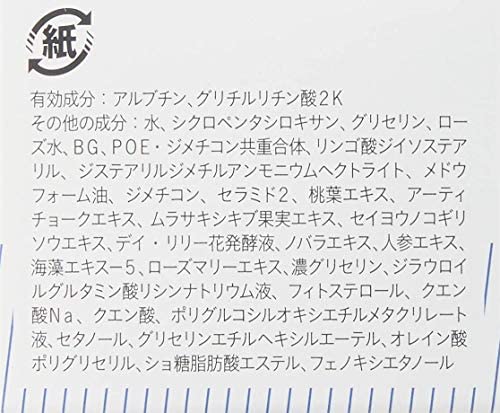 紙
有効成分：アルブチン、グリチルリチン酸2K
その他の成分：水、シクロペンタシロキサン、グリセリン、ロー
ズ水、BG、POE・ジメチコン共重合体、リンゴ酸ジイソステア
リル、ジステアリルジメチルアンモニウムヘクトライト、メドウ
フォーム油、ジメチコン、セラミド2、桃葉エキス、アーティ
チョークエキス、ムラサキシキブ果実エキス、セイヨウノコギリ
ソウエキス、デイ・リリー花発酵液、ノバラエキス、人参エキス、
海藻エキス－5、ローズマリーエキス、濃グリセリン、ジラウロイ
ルグルタミン酸リシンナトリウム液、フィトステロール、クエン
酸Na、クエン酸、ポリグルコシルオキシエチルメタクリレート
液、セタノール、グリセリンエチルヘキシルエーテル、オレイン酸
ポリグリセリル、ショ糖脂肪酸エステル、フェノキシエタノール